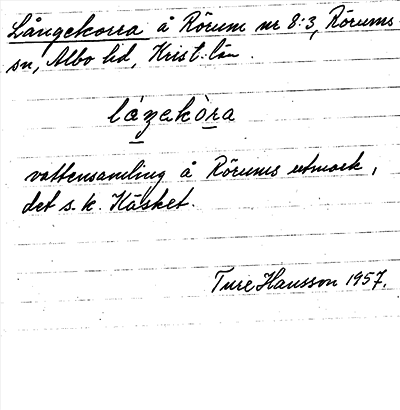 Långekorra å Rörum nr 8:3, Rörums
sn, Albo hd, Krist. län.
låzekòra
vattensamling å Rörums utmark,
det s.k. Käsket.
Ture Hansson 1957.